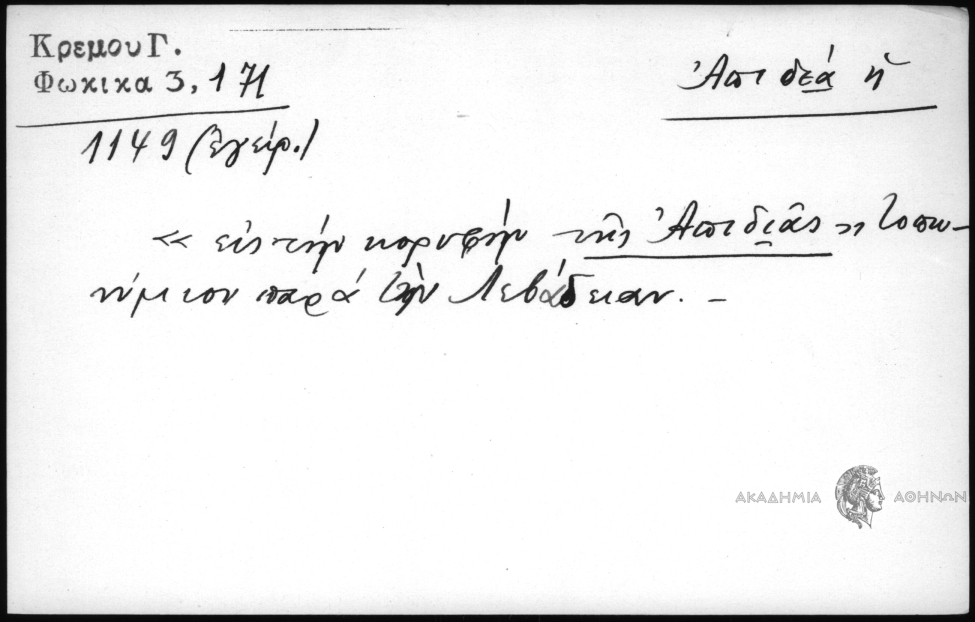 Κρεμου Γ.
Φωκικα 3, 171
Ἀπιδεά ἡ
1149 (ἔγγείρ.)
« εἰς τὴν κορυφὴν τῆς Ἀπιδιᾶς » τοπω-
νύμιον παρὰ τὴν Λεβάδειαν. –
ΑΚΑΔΗΜΙΑ ΑΘΗΝΩΝ